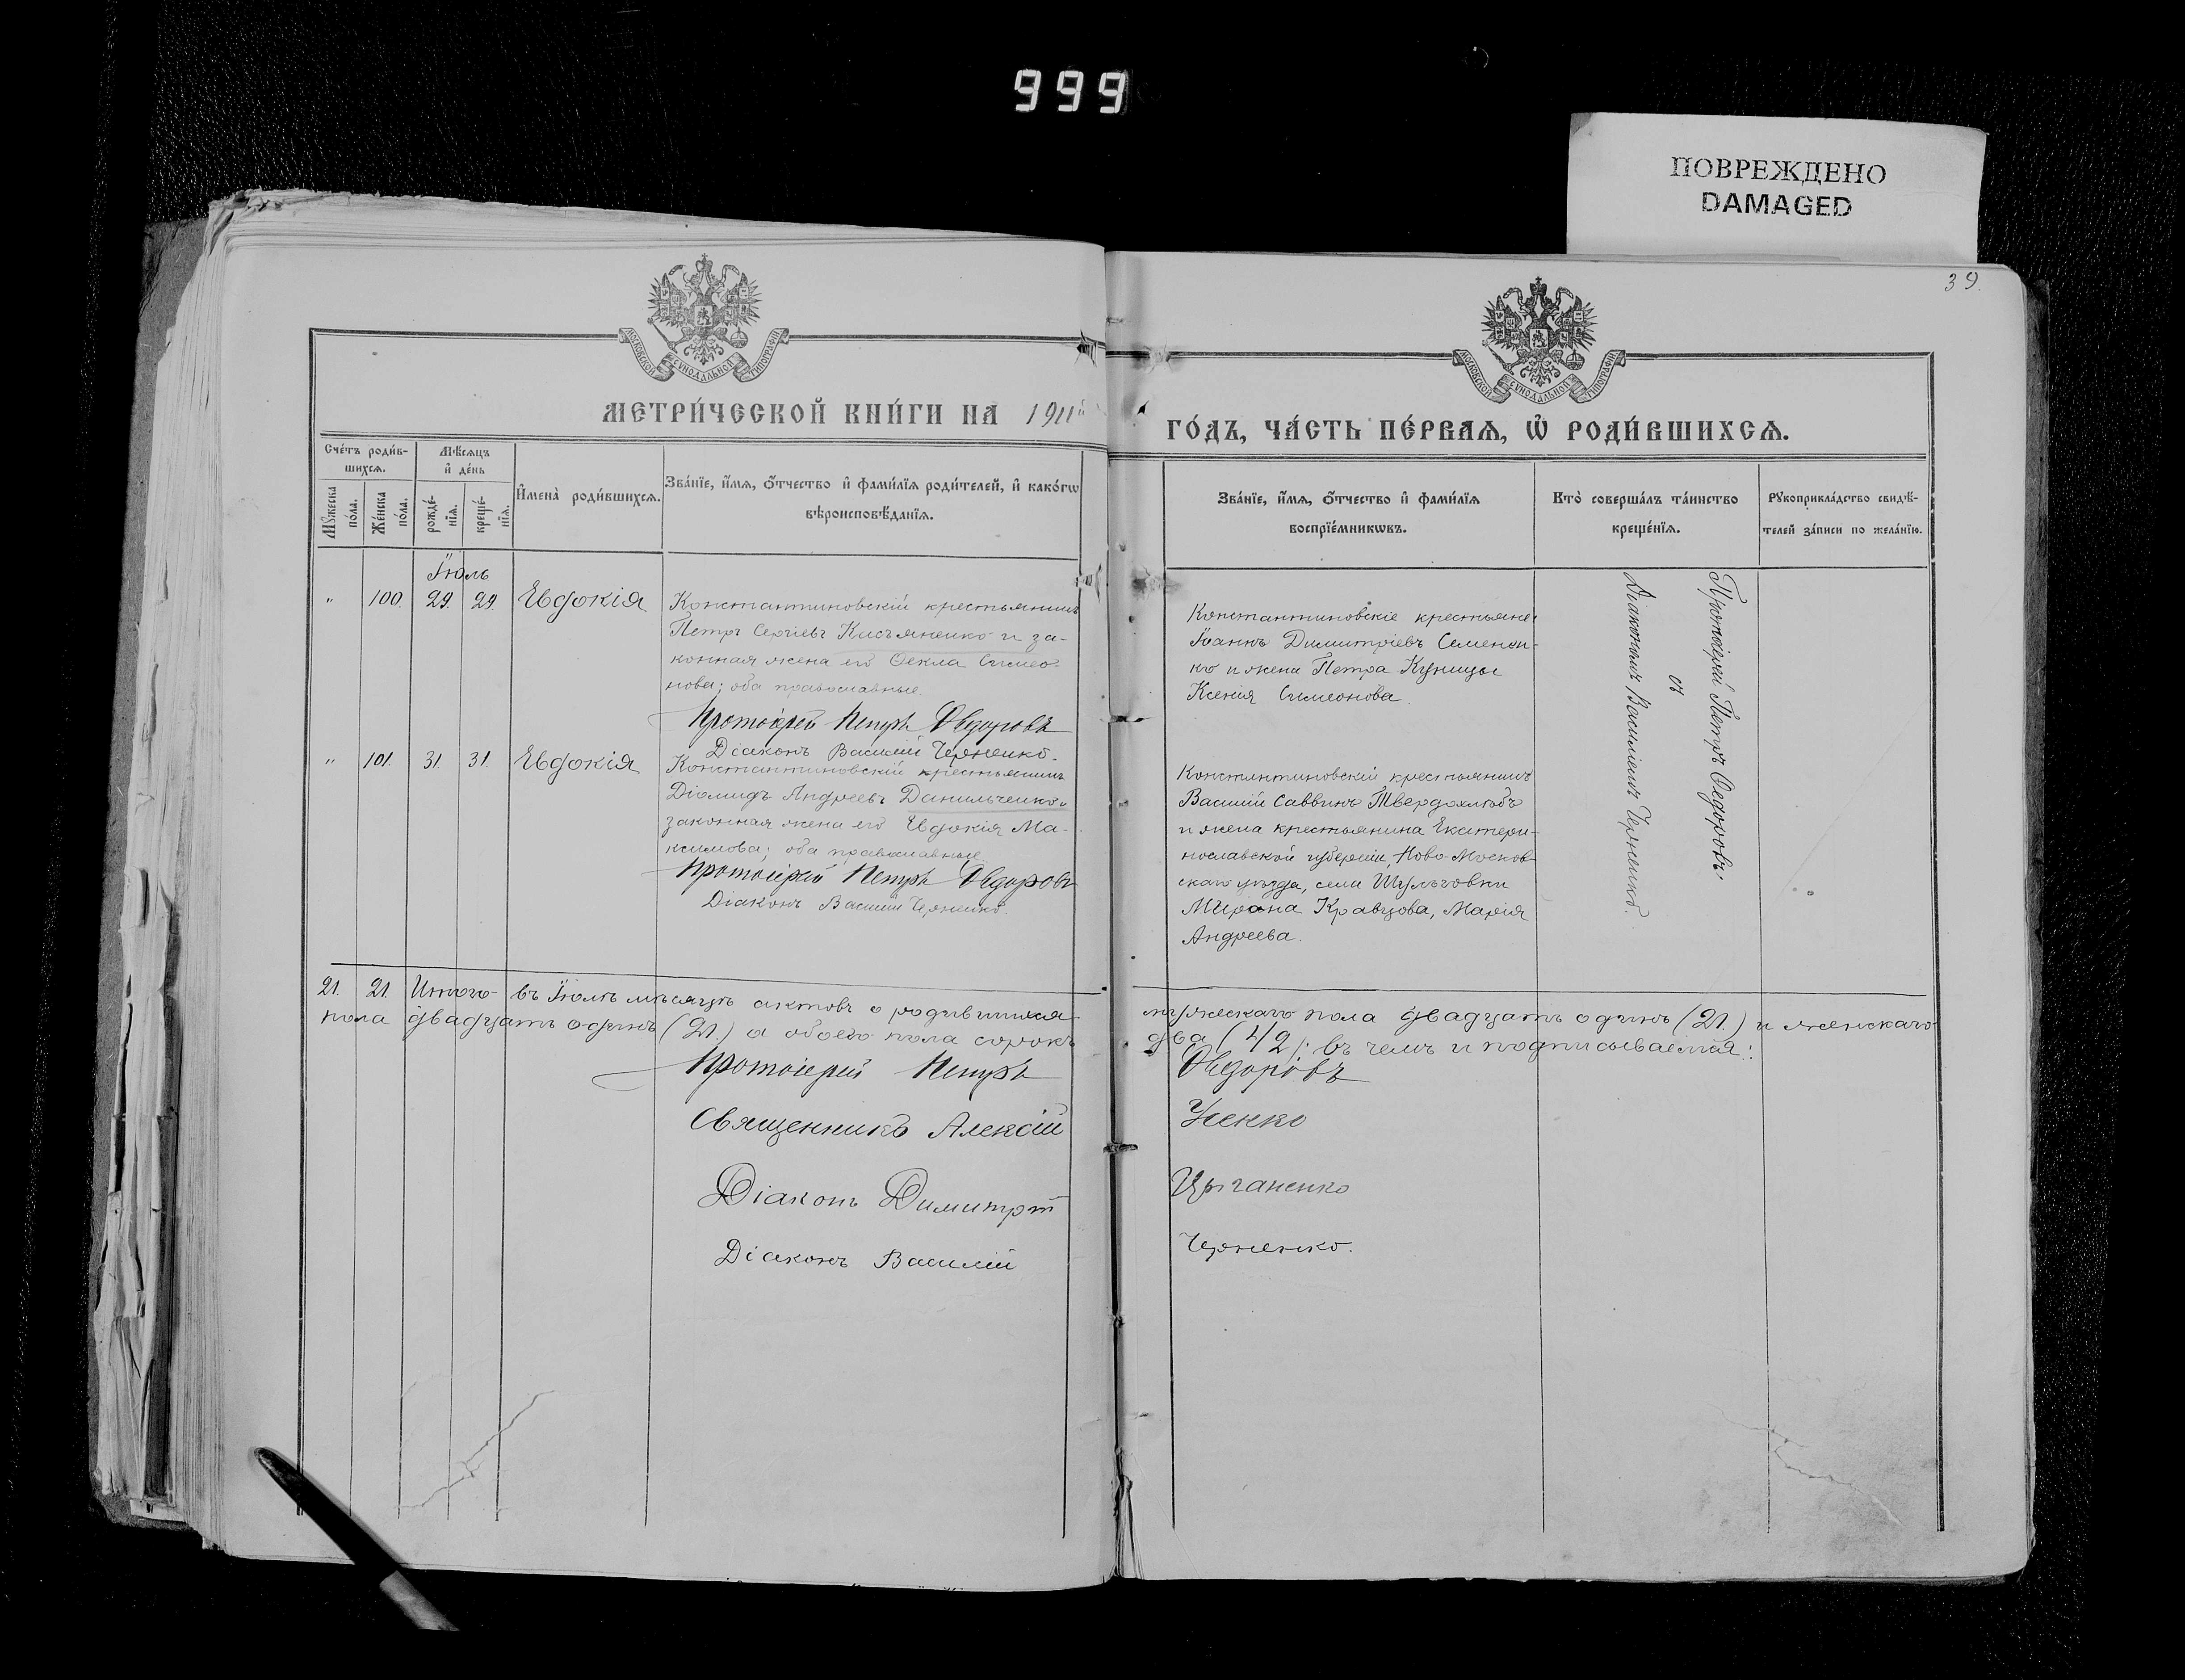 999
ПОВРЕЖДЕНО
DAMAGED
39.
МОСКОВСКОЙ СУНОДАЛЬНОЙ ТИПОГРАФІИ
МОСКОВСКОЙ СУНОДАЛЬНОЙ ТИПОГРАФІИ
МЕТРИ́ЧЕСКОЙ КНИ́ГИ НА 1911й
ГО́ДЪ, ЧА́СТЬ ПЕ́РВАѦ, Ѡ҆ РОДИ́ВШИХСѦ.
Сче́тъ роди́в-
шихсѧ.
Мѣ́сѧцъ
и҆ де́нь
Мꙋ́жеска
по́ла.
Же́нска
по́ла.
рожде́-
нїѧ.
креще́-
нїѧ.
И҆мена̀ роди́вшихсѧ.
Зва́нїе, и҆́мѧ, ѻ҆́тчество и҆ фами́лїѧ роди́телей, и҆ како́гѡ
вѣроисповѣ́данїѧ.
Зва́нїе, и҆́мѧ, ѻ҆́тчество и҆ фами́лїѧ
воспрїе́мникѡвъ.
Кто̀ соверша́лъ та́инство
креще́нїѧ.
Рꙋкоприкла́дство свидѣ́-
телей за́писи по жела́нїю.
Іюль
" 100. 29. 29. Евдокія
Константиновскій крестьянинъ
Петръ Сергіевъ Касьяненко и за-
конная жена его Ѳекла Симео-
нова; оба православные.
Протоіерей Петръ Ѳедоровъ
Діаконъ Василій Черненко.
Константиновскіе крестьяне:
Іоаннъ Димитріевъ Семенен-
ко и жена Петра Куницы
Ксенія Симеонова.
" 101. 31. 31. Евдокія
Константиновскій крестьянинъ
Діомидъ Андреевъ Данильченко и
законная жена его Евдокія Ма-
ксимова; оба православные.
Протоіерей Петръ Ѳедоровъ
Діаконъ Василій Черненко.
Константиновскій крестьянинъ
Василій Саввинъ Твердохлѣбъ
и жена крестьянина Екатери-
нославской губерніи, Ново-Москов-
скаго уѣзда, села Шульговки
Мирона Кравцова, Марія
Андреева.
Протоіерей Петръ Ѳедоровъ
съ
Діакономъ Василіемъ Черненко.
21. 21. Итого въ Іюлѣ мѣсяцѣ актовъ о родившихся мужескаго пола двадцать одинъ (21.) и женскаго
пола двадцать одинъ (21.) а обоего пола сорокъ два (42): въ чемъ и подписываемся:
Протоіерей Петръ Ѳедоровъ
Священникъ Алексій Усенко
Діаконъ Димитрій Цыганенко
Діаконъ Василій Черненко.